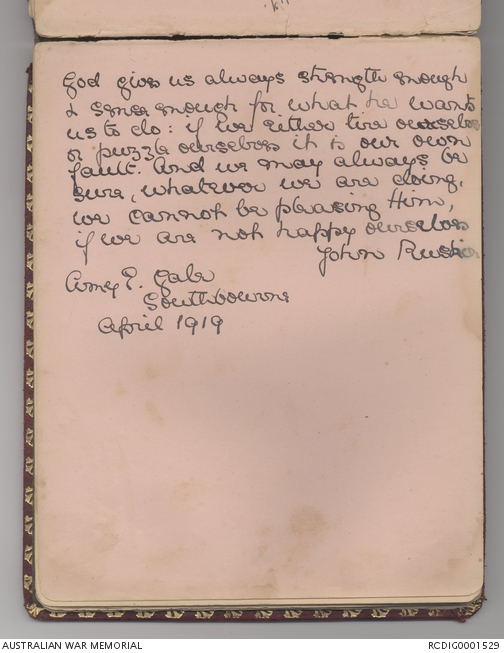 God gives us always strength enough
& sense enough for what he wants
us to do: if we either tire ourselves
or puzzle ourselves it is our own
fault. And we may always be
sure, whatever we are doing,
we cannot be pleasing Him,
if we are not happy ourselves
John Ruskin
Amy E. Gale
Southbourne
April 1919
AUSTRALIAN WAR MEMORIAL
RCDIG0001529